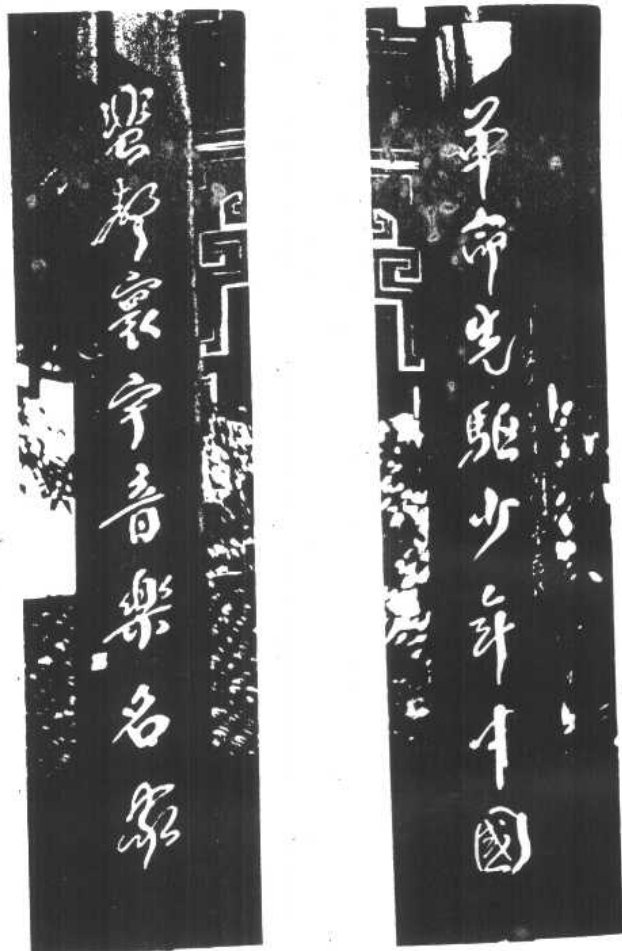 革命先驅少年中國
蜚聲寰宇音樂名家